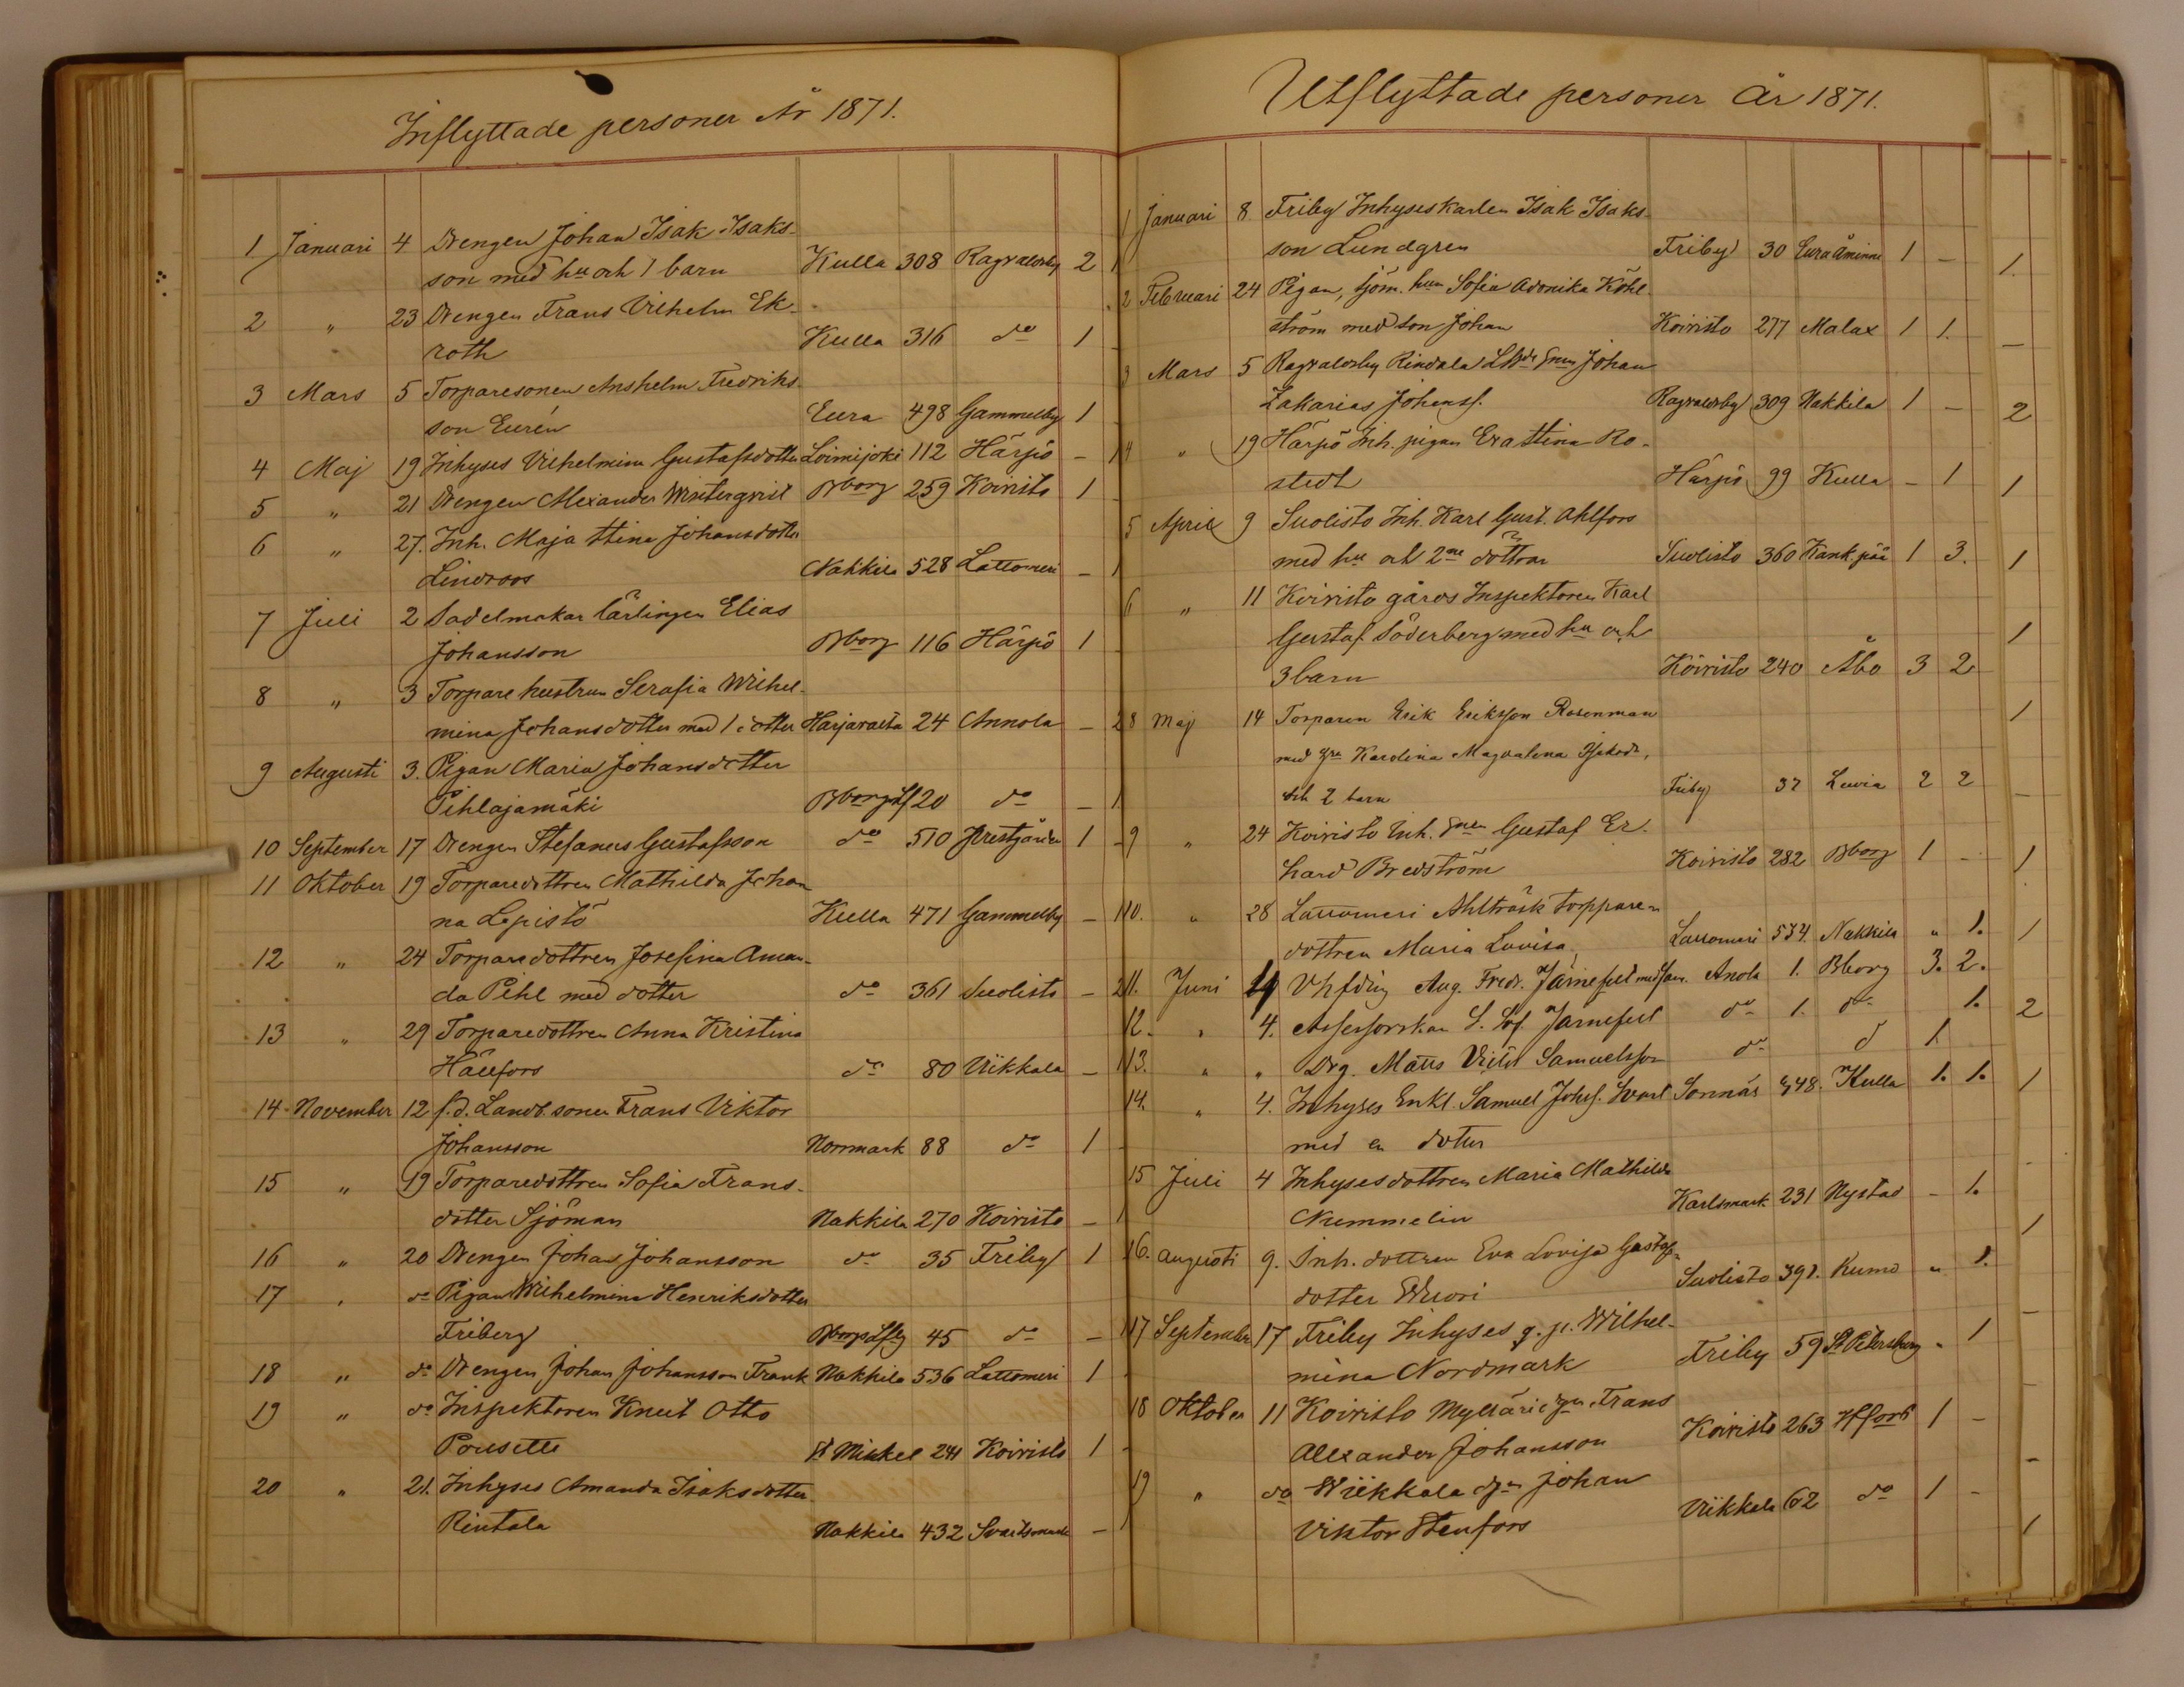 Inflyttade personer År 1871.
1 Januari 4 Drengen Johan Isak Isaks-
son med hu och 1 barn Kulla 308 Ragvaldsby 2 1
2 " 23 Drengen Frans Vilhelm Ek-
roth Kulla 316 do 1 -
3 Mars 5 Torparesonen Anshelm Fredriks
son Eurén Eura 498 Gammelby 1 -
4 Maj 19 Inhyses Vilhelmina Gustafsdotter Loimijoki 112 Härpö - 1
5 " 21 Drengen Alexander Westerqvist Bborg 259 Koivisto 1 -
6 " 27. Inh. Maja Stina Johansdotter
Lindroos Nakkila 528 Lattomeri - 1
7 Juli 2 Sadelmakar lärlingen Elias
Johansson Bborg 116 Härpö 1 -
8 " 3 Torpare hustrun Serafia Wilhel-
mina Johansdotter med 1 dotter Harjavalta 24 Annola - 2
9 Augusti 3. Pigan Maria Johansdotter
Pihlajamäki Bborg 20 do - 1
10 September 17 Drengen Stefanus Gustafsson do 510 Prestgården 1 -
11 Oktober 19 Torparedottren Mathilda Johan
na Lepistö Kulla 471 Gammelby - 1
12 " 24 Torparedottren Josefina Aman-
da Pihl med dotter do 361 Suolisto - 2
13 " 29 Torparedottren Anna Kristina
Hällfors do 80 Viikkala - 1
14 November 12 f.d. Landb. sonen Frans Viktor
Johansson Norrmark 88 do 1 -
15 " 19 Torparedottren Sofia Frans-
dotter Sjöman Nakkila 270 Koivisto - 1
16 " 20 Drengen Johan Johansson do 35 Friby 1 -
17 " do Pigan Wilhelmina Henriksdotter
Friberg 45 do - 1
18 " do Drengen Johan Johansson Frank Nakkila 536 Lattomeri 1 -
19 " do Inspektoren Knut Otto
Pousette St Mickel 241 Koivisto 1 -
20 " 21. Inhyses Amanda Isaksdotter
Rintala Nakkila 432 Svartsmark - 1
Utflyttade personer År 1871.
1 Januari 8 Friby Inhyseskarlen Isak Isaks-
son Lundgren Friby 30 Euraåminne 1 -
2 Februari 24 Pigan, sjöm. hun Sofia Adonika Köhl
ström med son Johan Koivisto 277 Malax 1 1.
3 Mars 5 Ragvaldsby Rindala Johan
Zakarias Johanss. Ragvaldsby 309 Nakkila 1 -
4 " 19 Härpö Inh. pigan Eva Stina Ro-
stedt Härpö 99 Kulla - 1
5 April 9 Suolisto Inh. Karl Gust. Ahlfors
med hu och 2ne döttrar Suolisto 360 Kank.pää 1 3.
6 " 11 Koivisto gårds Inspektoren Karl
Gustaf Söderberg med hu och
3 barn Koivisto 240 Åbo 3 2
8 Maj 14 Torparen Erik Eriksson Rosenman
med Karolina Magdalena
och 2 barn Friby 37 Luvia 2 2
9 " 24 Koivisto Inh. Gustaf Er-
hard Bredström Koivisto 282 Bborg 1 -
10. " 28 Lattomeri Ahlträsk torppare-
dottren Maria Lovisa Lattomeri 534 Nakkila " 1.
11. Juni Aug. Fredr. Järnefelt med fam. Anola 1. Bborg 3. 2.
12. " 4. Assessorskan Järnefelt do 1. do 1.
13. " " Drg. Matts Samuelsson do d 1.
14. " 4. Inhyses Enkl. Samuel Sonnäs 448. Kulla 1. 1.
med en dotter
15 Juli 4 Inhysesdottren Maria Mathilda
Nummelin Karlsmark 231 Nystad - 1.
16. Augusti 9. Inh. dottren Eva Lovisa Gustafs-
dotter Wuori Suolisto 391. Kumo " 1.
17 September 17 Friby Inhyses q. p. Wilhel-
mina Nordmark Friby 59 St Petersburg " 1
18 Oktober 11 Koivisto Mylläri Frans
Alexander Johansson Koivisto 263 Hfors 1 -
19 " do Wiikkala Johan
Viktor Stenfors Viikkala 62 do 1 -
1.
-
2
1
1
1
1
-
1
1
2
1
-
1
-
-
-
1